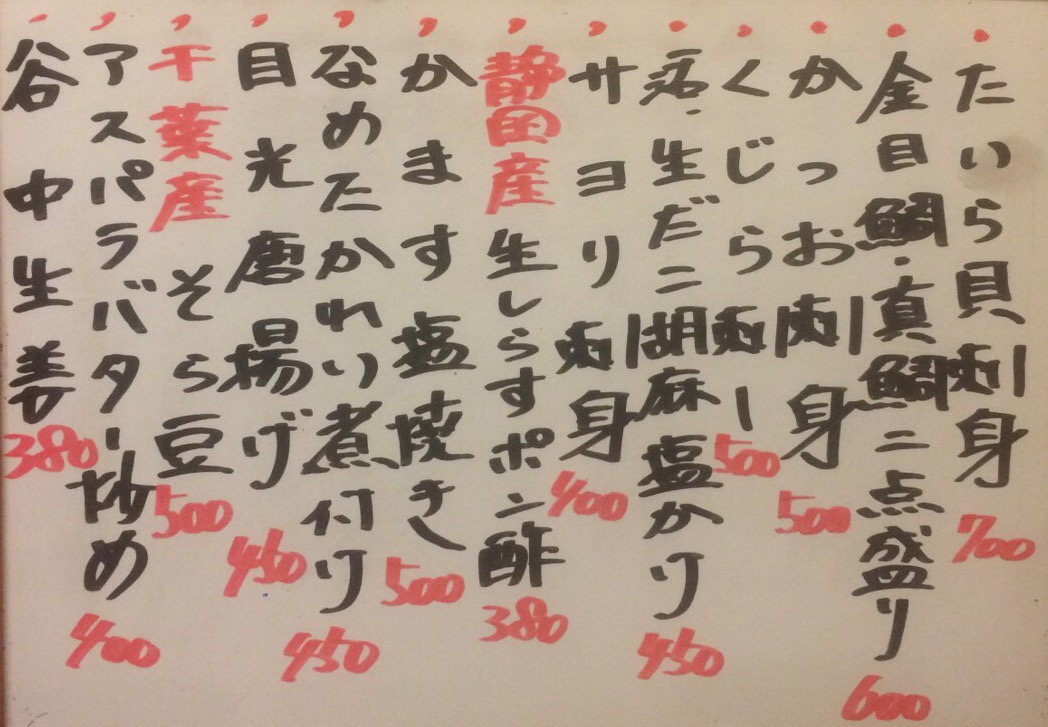 ・たいら貝刺身 700
・金目鯛・真鯛二点盛り 600
・かつお刺身 500
・くじら刺し 500
・生だこ胡麻塩かけ 450
・サヨリ刺身 400
・静岡産 生しらすポン酢 380
・かます塩焼き 500
・なめたかれい煮付け 450
・目光唐揚げ 450
・千葉産 そら豆 500
・アスパラバター炒め 400
・谷中生姜 380